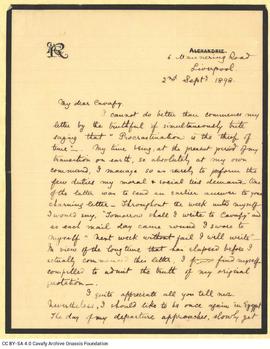 ALEXANDRIE.
6 Mannering Road
Liverpool.
2nd Septr 1898.
My dear Cavafy,
I cannot do better than commence my
letter by the truthful if simultaneously trite
saying that "Procrastination is the thief of
time" – My time being, at the present period of my
transition on earth, so absolutely at my own
command, I manage so as rarely to perform the
few duties my moral & social ties demand. One
of the latter was to send an earlier answer to your
charming letter – Throughout the week unto myself
I would say, "Tomorrow shall I write to Cavafy" and
as each mail day came round I swore to
myself "Next week without fail I will write" –
In view of the long time that has elapsed before I
actually commenced this letter, I find myself
compelled to admit the truth of my original
quotation –
I quite appreciate all you tell me.
Nevertheless, I should like to be once again in Egypt
The day of my departure approaches, slowly yet
CC BY-SA 4.0 Cavafy Archive Onassis Foundation